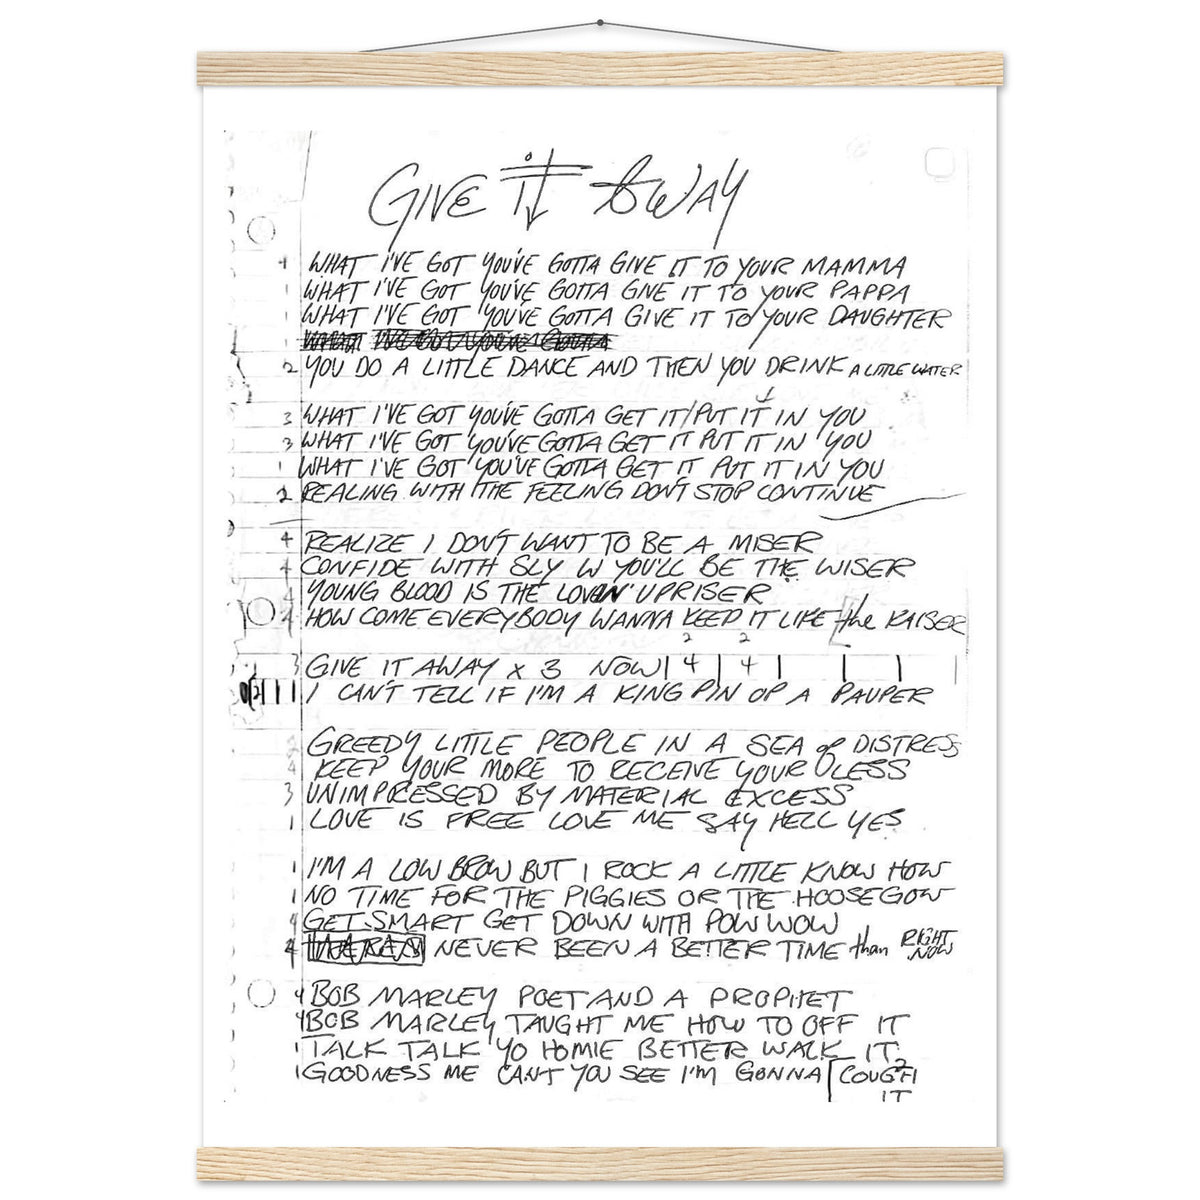 GIVE IT AWAY
4 WHAT I'VE GOT YOU'VE GOTTA GIVE IT TO YOUR MAMMA
1 WHAT I'VE GOT YOU'VE GOTTA GIVE IT TO YOUR PAPPA
1 WHAT I'VE GOT YOU'VE GOTTA GIVE IT TO YOUR DAUGHTER
1 WHAT I'VE GOT YOU'VE GOTTA
2 YOU DO A LITTLE DANCE AND THEN YOU DRINK A LITTLE WATER
3 WHAT I'VE GOT YOU'VE GOTTA GET IT/PUT IT IN YOU
3 WHAT I'VE GOT YOU'VE GOTTA GET IT PUT IT IN YOU
1 WHAT I'VE GOT YOU'VE GOTTA GET IT PUT IT IN YOU
2 REALING WITH THE FEELING DON'T STOP CONTINUE
4 REALIZE I DON'T WANT TO BE A MISER
4 CONFIDE WITH SLY W YOU'LL BE THE WISER
4 YOUNG BLOOD IS THE LOVIN' UPRISER
4 HOW COME EVERYBODY WANNA KEEP IT LIKE the KAISER
2 2
3 GIVE IT AWAY x 3 NOW | 4 | 4 | | | |
I CAN'T TELL IF I'M A KING PIN OR A PAUPER
2 GREEDY LITTLE PEOPLE IN A SEA of DISTRESS
4 KEEP YOUR MORE TO RECEIVE YOUR LESS
3 UNIMPRESSED BY MATERIAL EXCESS
1 LOVE IS FREE LOVE ME SAY HELL YES
1 I'M A LOW BROW BUT I ROCK A LITTLE KNOW HOW
1 NO TIME FOR THE PIGGIES OR THE HOOSEGOW
4 GET SMART GET DOWN WITH POW WOW
4 NEVER BEEN A BETTER TIME than RIGHT NOW
4 BOB MARLEY POET AND A PROPHET
4 BOB MARLEY TAUGHT ME HOW TO OFF IT
1 TALK TALK YO HOMIE BETTER WALK IT
1 GOODNESS ME CAN'T YOU SEE I'M GONNA COUGH
IT